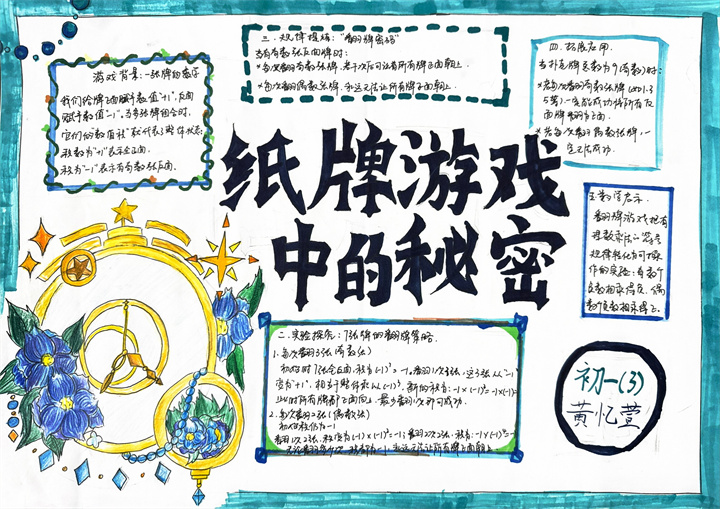 纸牌游戏
中的秘密
游戏背景:一张牌的密字
我们给牌正面赋予数值"+1",反面
赋予数值"-1",当多张牌组合时,
它们的数值积"就代表了整体状态:
积为"+1"表示全正面.
积为"-1"表示有奇数张反面.
三. 规律提炼:"翻牌密码"
当有奇数张反面牌时:
*每次翻奇数张牌,若干次后可让所有牌正面朝上.
*每次翻偶数张牌,永远无法让所有牌正面朝上.
四. 拓展应用.
当扑克牌总数为9(奇数)时:
*若每次翻奇数张牌(如1.3
5等),一定能成功将所有反
面牌翻为正面.
*若每次翻偶数张牌,一
定无法成功.
五.数学启示.
翻牌游戏把有
理数乘法的符号
规律转化为可操
作的实验:奇数个
负数相乘得负,偶
数个负数相乘得正.
二.实验探究:7张牌的翻牌策略.
1.每次翻3张(奇数张)
初始时7张全反面,积为(-1)⁷=-1,翻1次3张,这3张从"-1"
变为"+1",相当于整体乘以(-1)³,新的积为:-1×(-1)³=-1×(-1)=
此时所有牌都正面向上,最少翻
2.每次翻2张(偶数张)
初始积仍为-1
翻1次2张,积变为(-1)×(-1)²=-1;翻2次2张,积为:-1×(-1)⁴=-1
永远无法让所有牌正面朝上
初一(3)
黄忆萱